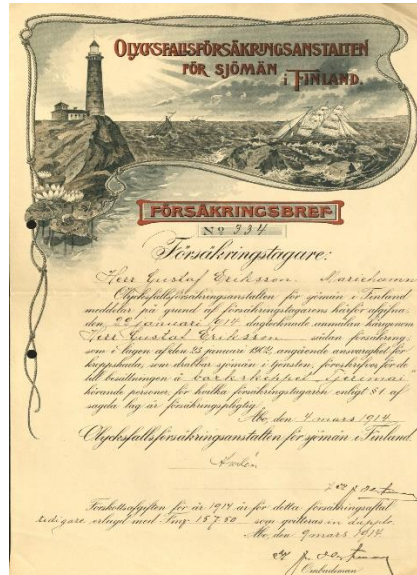 OLYCKSFALLSFÖRSÄKRINGSANSTALTEN
FÖR SJÖMÄN
i FINLAND.
FÖRSÄKRINGSBREF
No 334
Försäkringstagare:
Herr Gustaf Eriksson. Mariehamn
Olycksfallsförsäkringsanstalten för sjömän i Finland
meddelar på grund af försäkringstagarens härför afgifna,
den 22 januari 1914 dagtecknade anmälan härigenom
Herr Gustaf Eriksson sådan försäkring,
som i lagen af den 23 januari 1902, angående ansvarighet för
kroppsskada, som drabbar sjömän i tjensten, föreskrifves för de
till besättningen å barkskeppet
hörande personer för hvilka försäkringstagaren enligt § 1 af
sagda lag är försäkringspliktig.
Åbo, den 7 mars 1914.
Olycksfallsförsäkringsanstalten för sjömän i Finland.
Förskottsafgiften för år 1914 är för detta försäkringsaftal
tidigare erlagd med Fmk 157.50 som qvitteras in duplo.
Åbo, den 9 mars 1914.
Ombudsman